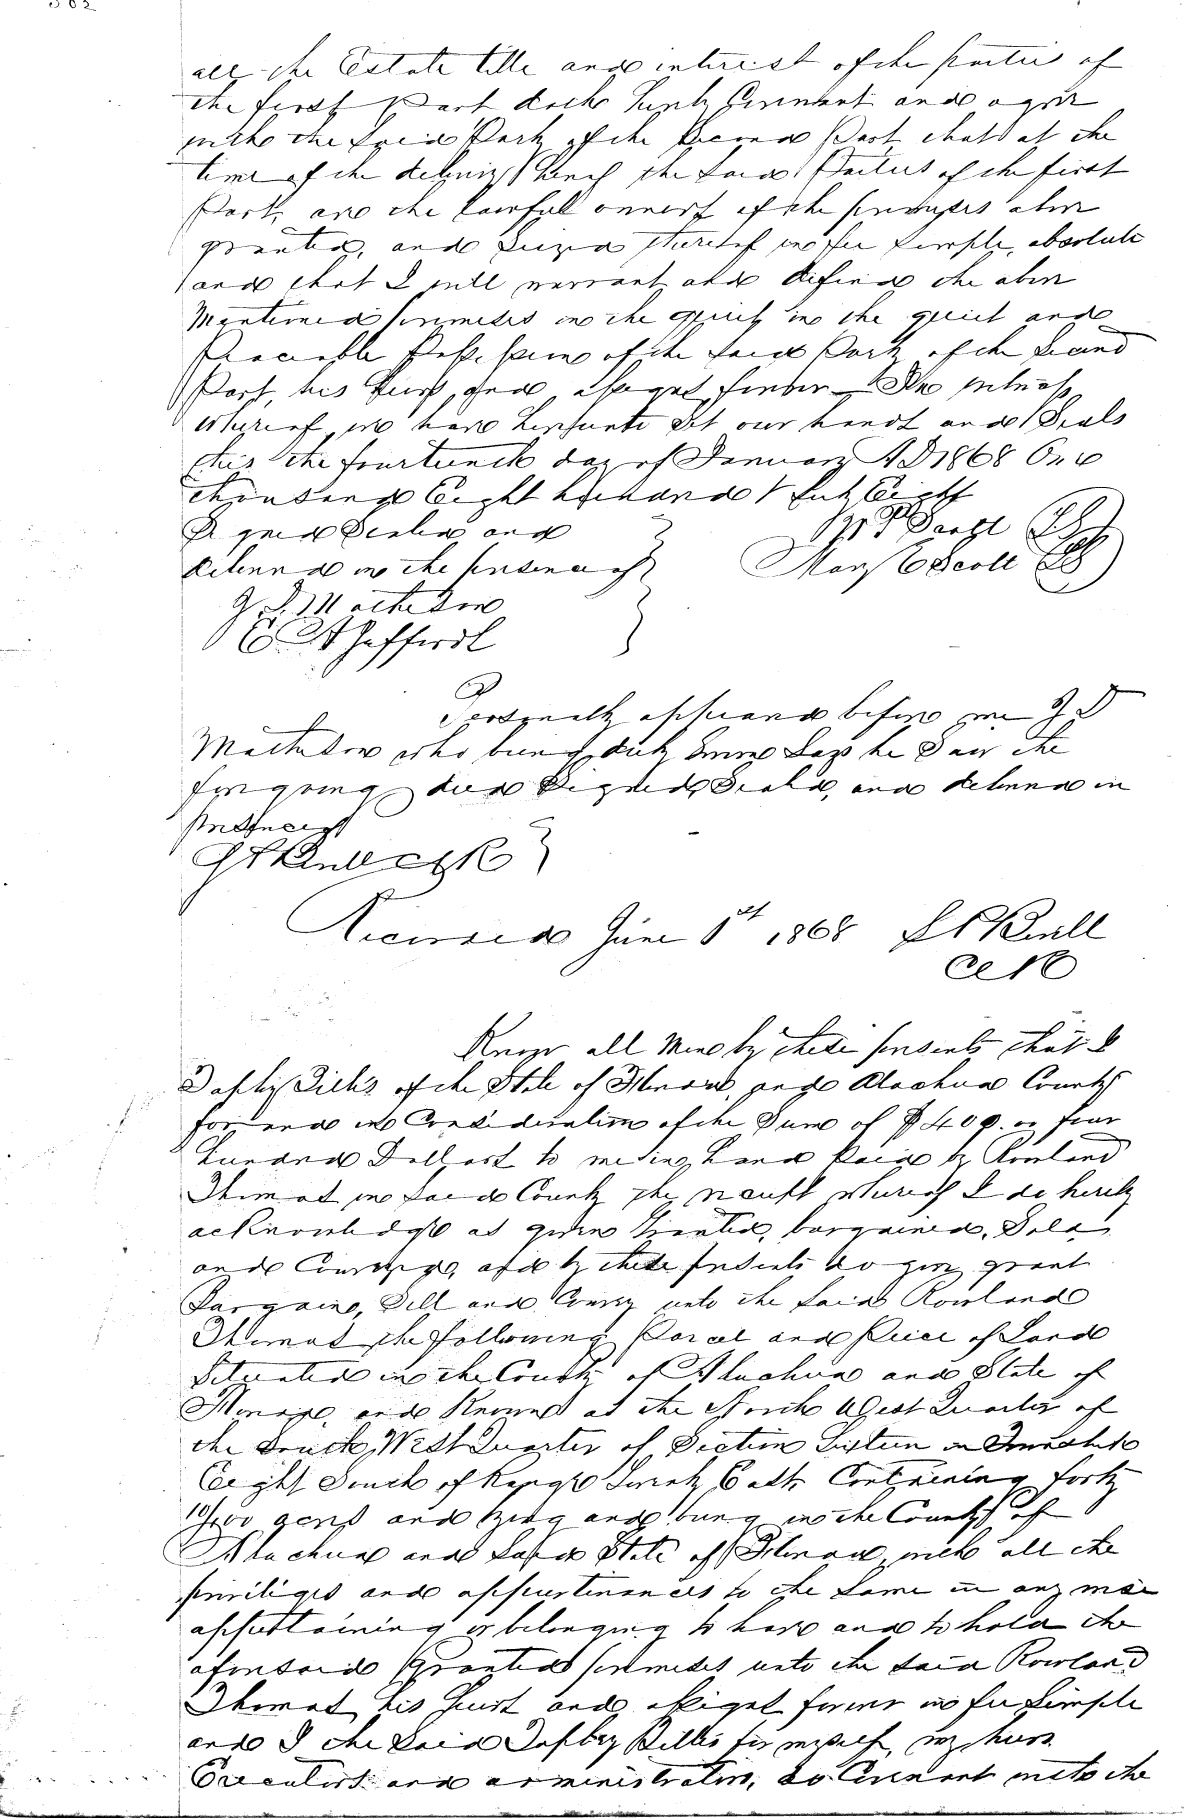 all the Estate title and interest of the parties of
the first Part doth hereby Covenant and agree
with the Said Party of the Second Part, that at the
time of the delivery hereof the Said Parties of the first
Part, are the lawful owners of the premises above
granted, and Seized thereof in fee Simple, absolute
and that I will warrant and defend the above
Mentioned premises in the quiet, in the quiet and
Peaceable Possession of the Said Party of the Second
Part, his heirs and assigns forever In witness
whereof we have hereunto Set our hands and Seals
this the fourteenth day of January AD 1868 One
thousand Eight hundred & Sixty Eight
Signed Sealed and
delivered in the presence of
Mary E Scott
J. D. Matheson
Personally appeared before me J D
Matheson who being duly Sworn Says he Saw the
foregoing deed Signed, Sealed, and delivered in
presence of
Recorded June 1st 1868
Clk
Know all Men by these presents that I
of the State of Florida, and Alachua County
for and in Consideration of the Sum of $400. or four
hundred Dollars to me in hand paid by Rowland
Thomas in Said County the receipt whereof I do hereby
acknowledge as given Granted, bargained, Sold,
and Conveyed, and by these presents do give grant
Bargain, Sell and Convey unto the Said Rowland
Thomas the following Parcel and Piece of Land
Situated in the County of Alachua and State of
Florida, and Known as the North West Quarter of
the South West Quarter of Section Sixteen in Township
Eight South of Range Twenty East Containing forty
10/100 acres and lying and being in the County of
Alachua and Said State of Florida, with all the
priviliges and appurtinances to the Same in any
appertaining or belonging to have and to hold the
aforesaid Granted premises unto the Said Rowland
Thomas his heirs and assigns forever in fee Simple
and I the Said for myself, my heirs
Executors and administrators, do Covenant with the